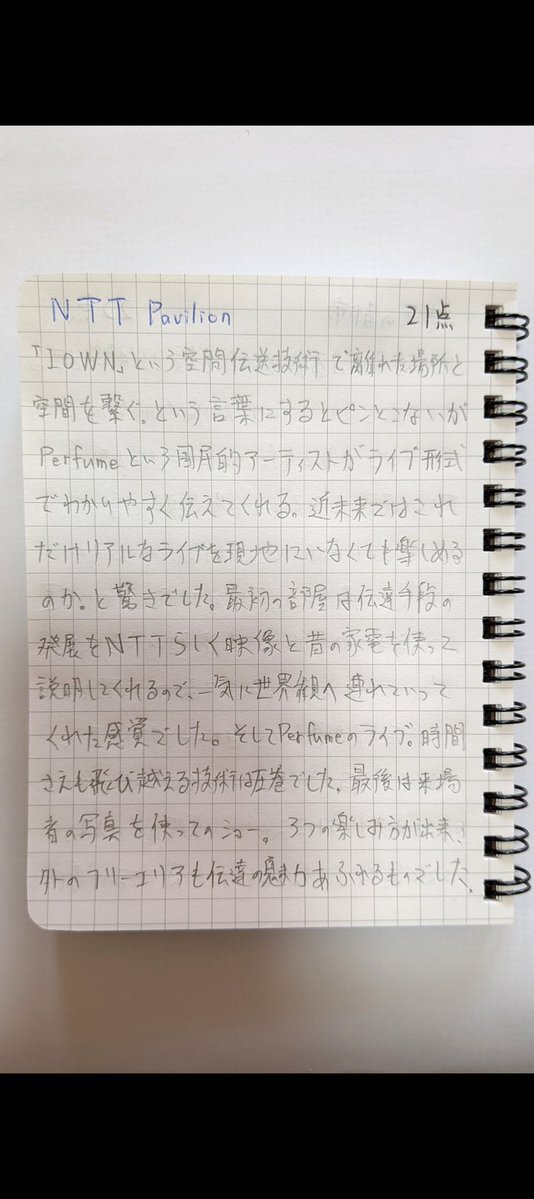 NTT Pavilion 21点
「IOWN」という空間伝送技術で離れた場所と
空間を繋ぐ。という言葉にするとピンとこないが
Perfumeという国民的アーティストがライブ形式
でわかりやすく伝えてくれる。近未来ではこれ
だけリアルなライブを現地にいなくても楽しめる
のか。と驚きでした。最初の部屋は伝達手段の
発展をNTTらしく映像と昔の家電を使って
説明してくれるので、一気に世界観へ連れていって
くれた感覚でした。そしてPerfumeのライブ。時間
さえも飛び越える技術は圧巻でした。最後は来場
者の写真を使ってのショー。3つの楽しみ方が出来、
外のフリーエリアも伝達の魅力あふれるものでした。